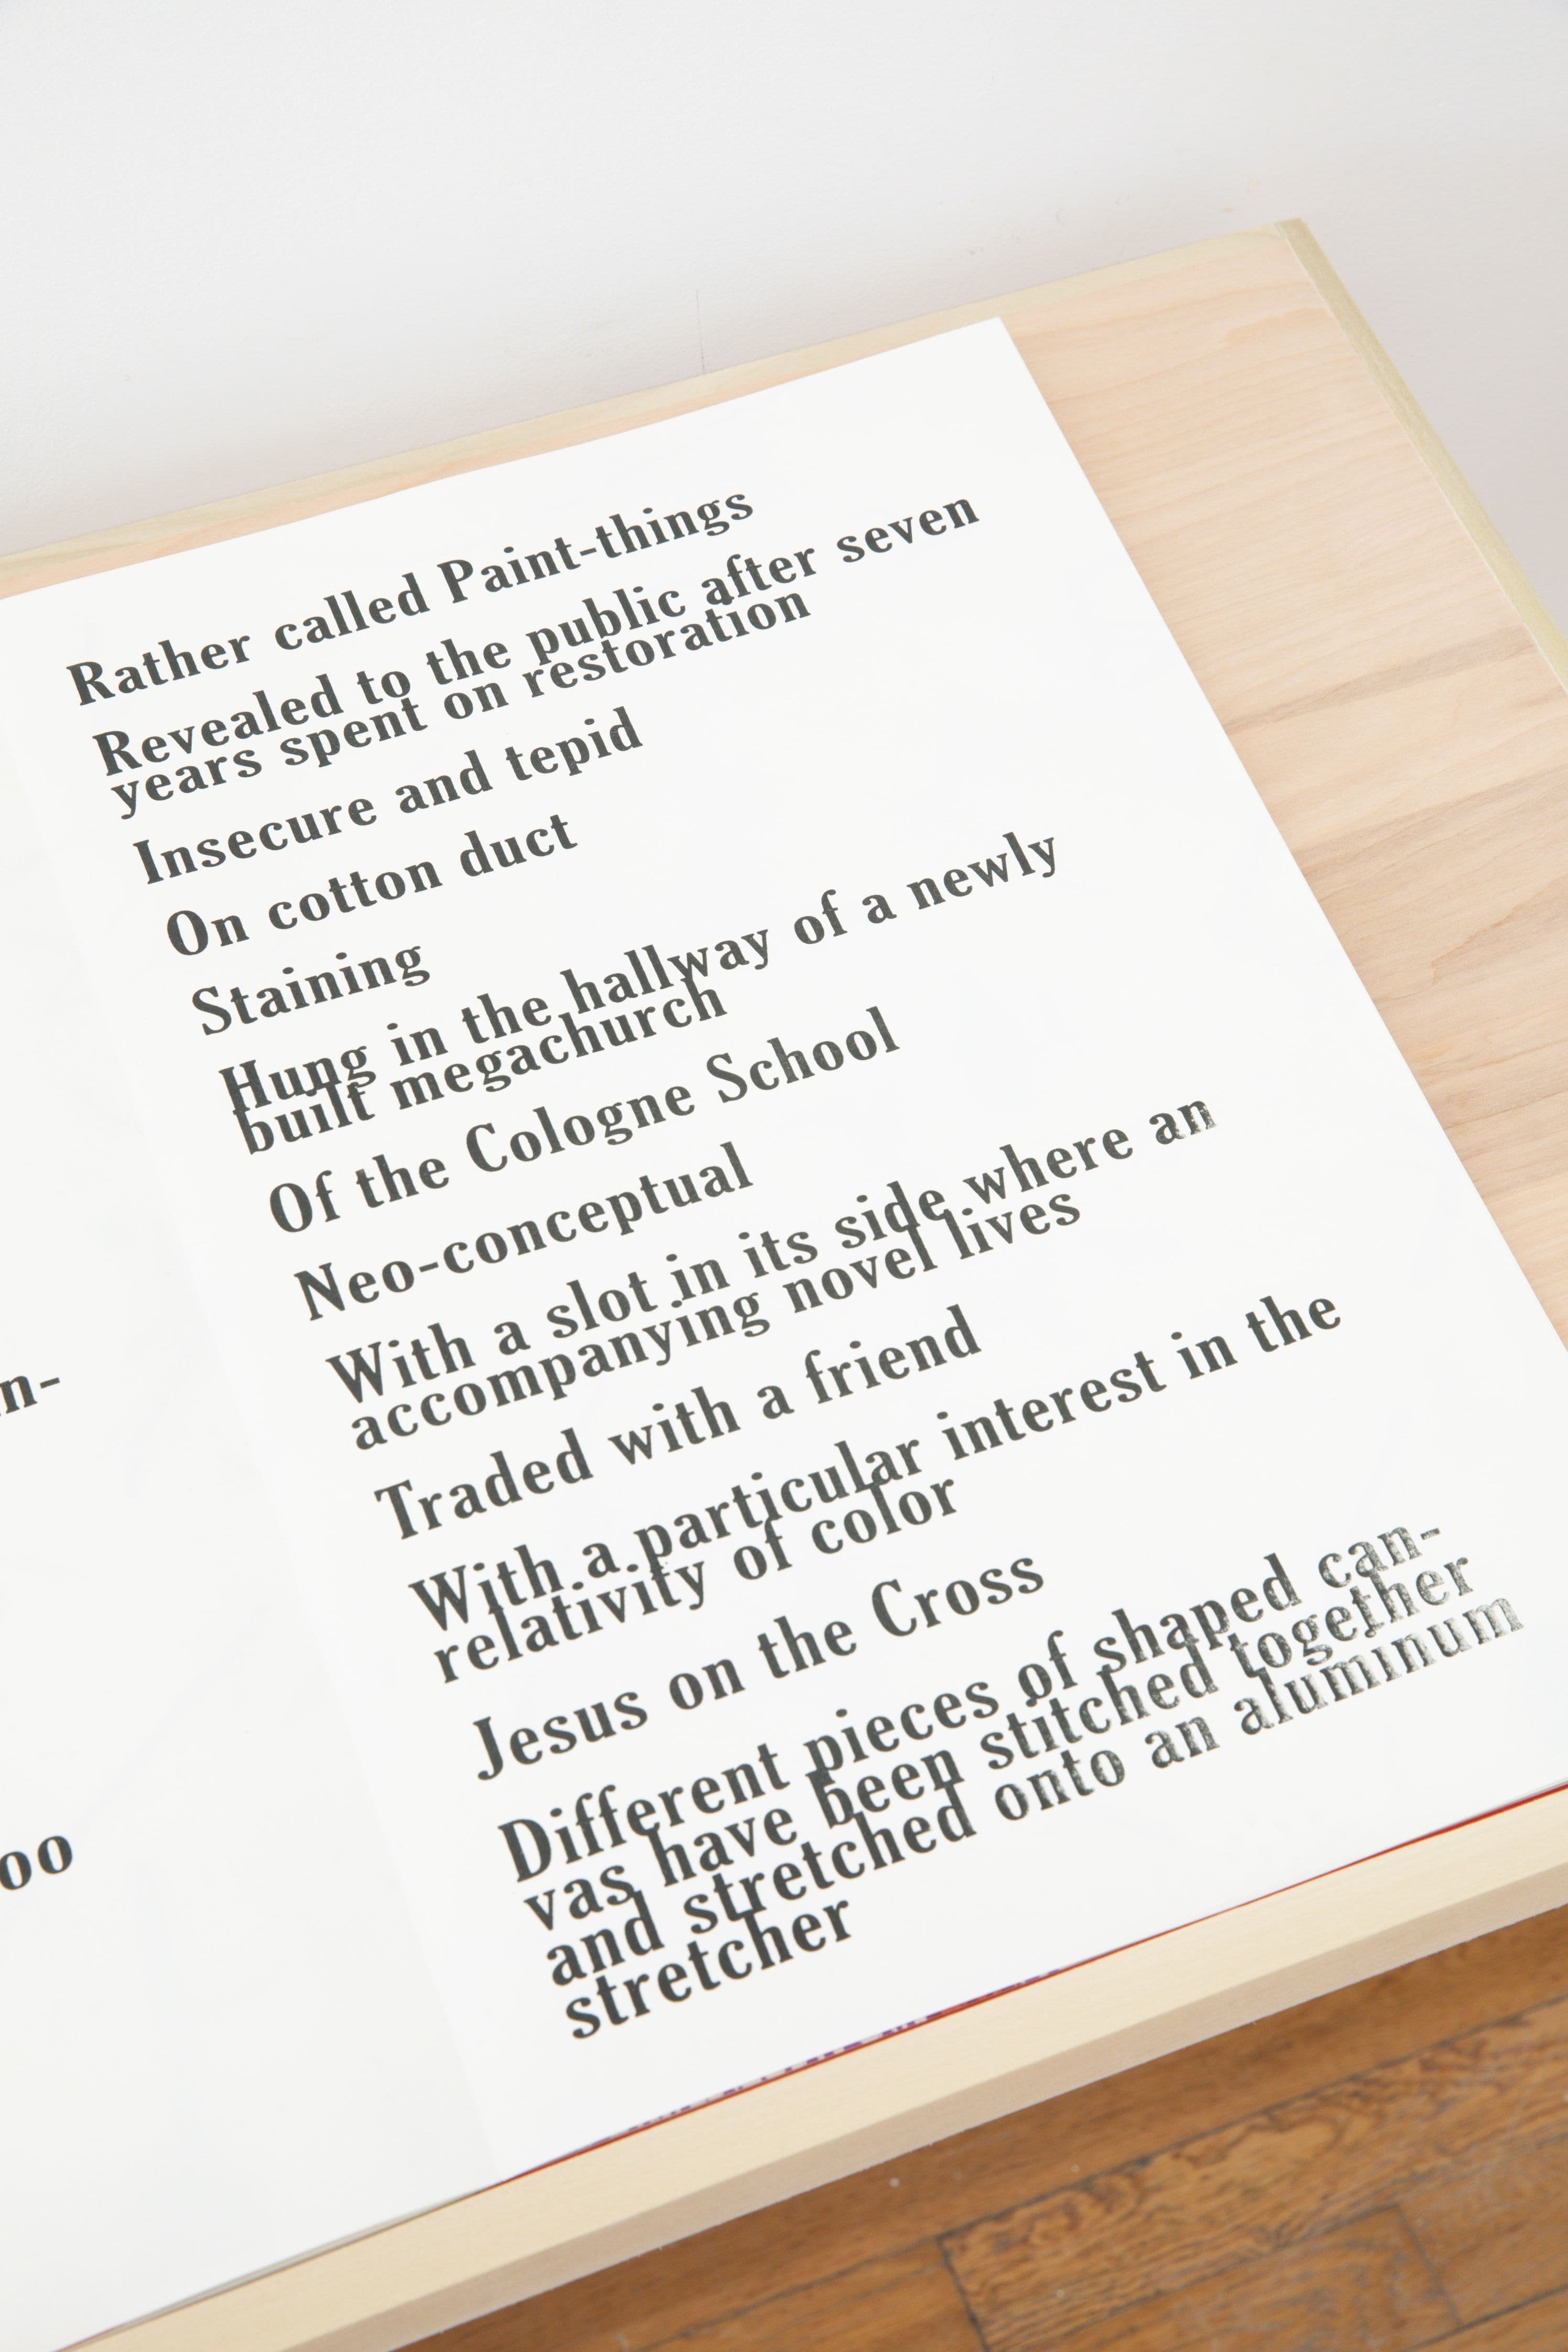 n-
oo
Rather called Paint-things
Revealed to the public after seven
years spent on restoration
Insecure and tepid
On cotton duct
Staining
Hung in the hallway of a newly
built megachurch
Of the Cologne School
Neo-conceptual
With a slot in its side where an
accompanying novel lives
Traded with a friend
With a particular interest in the
relativity of color
Jesus on the Cross
Different pieces of shaped can-
vas have been stitched together
and stretched onto an aluminum
stretcher